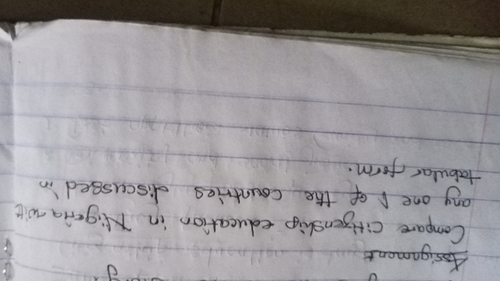 Assignment
Compare citizenship education in Nigeria wit
any one of the countries discussed in
tabular form.